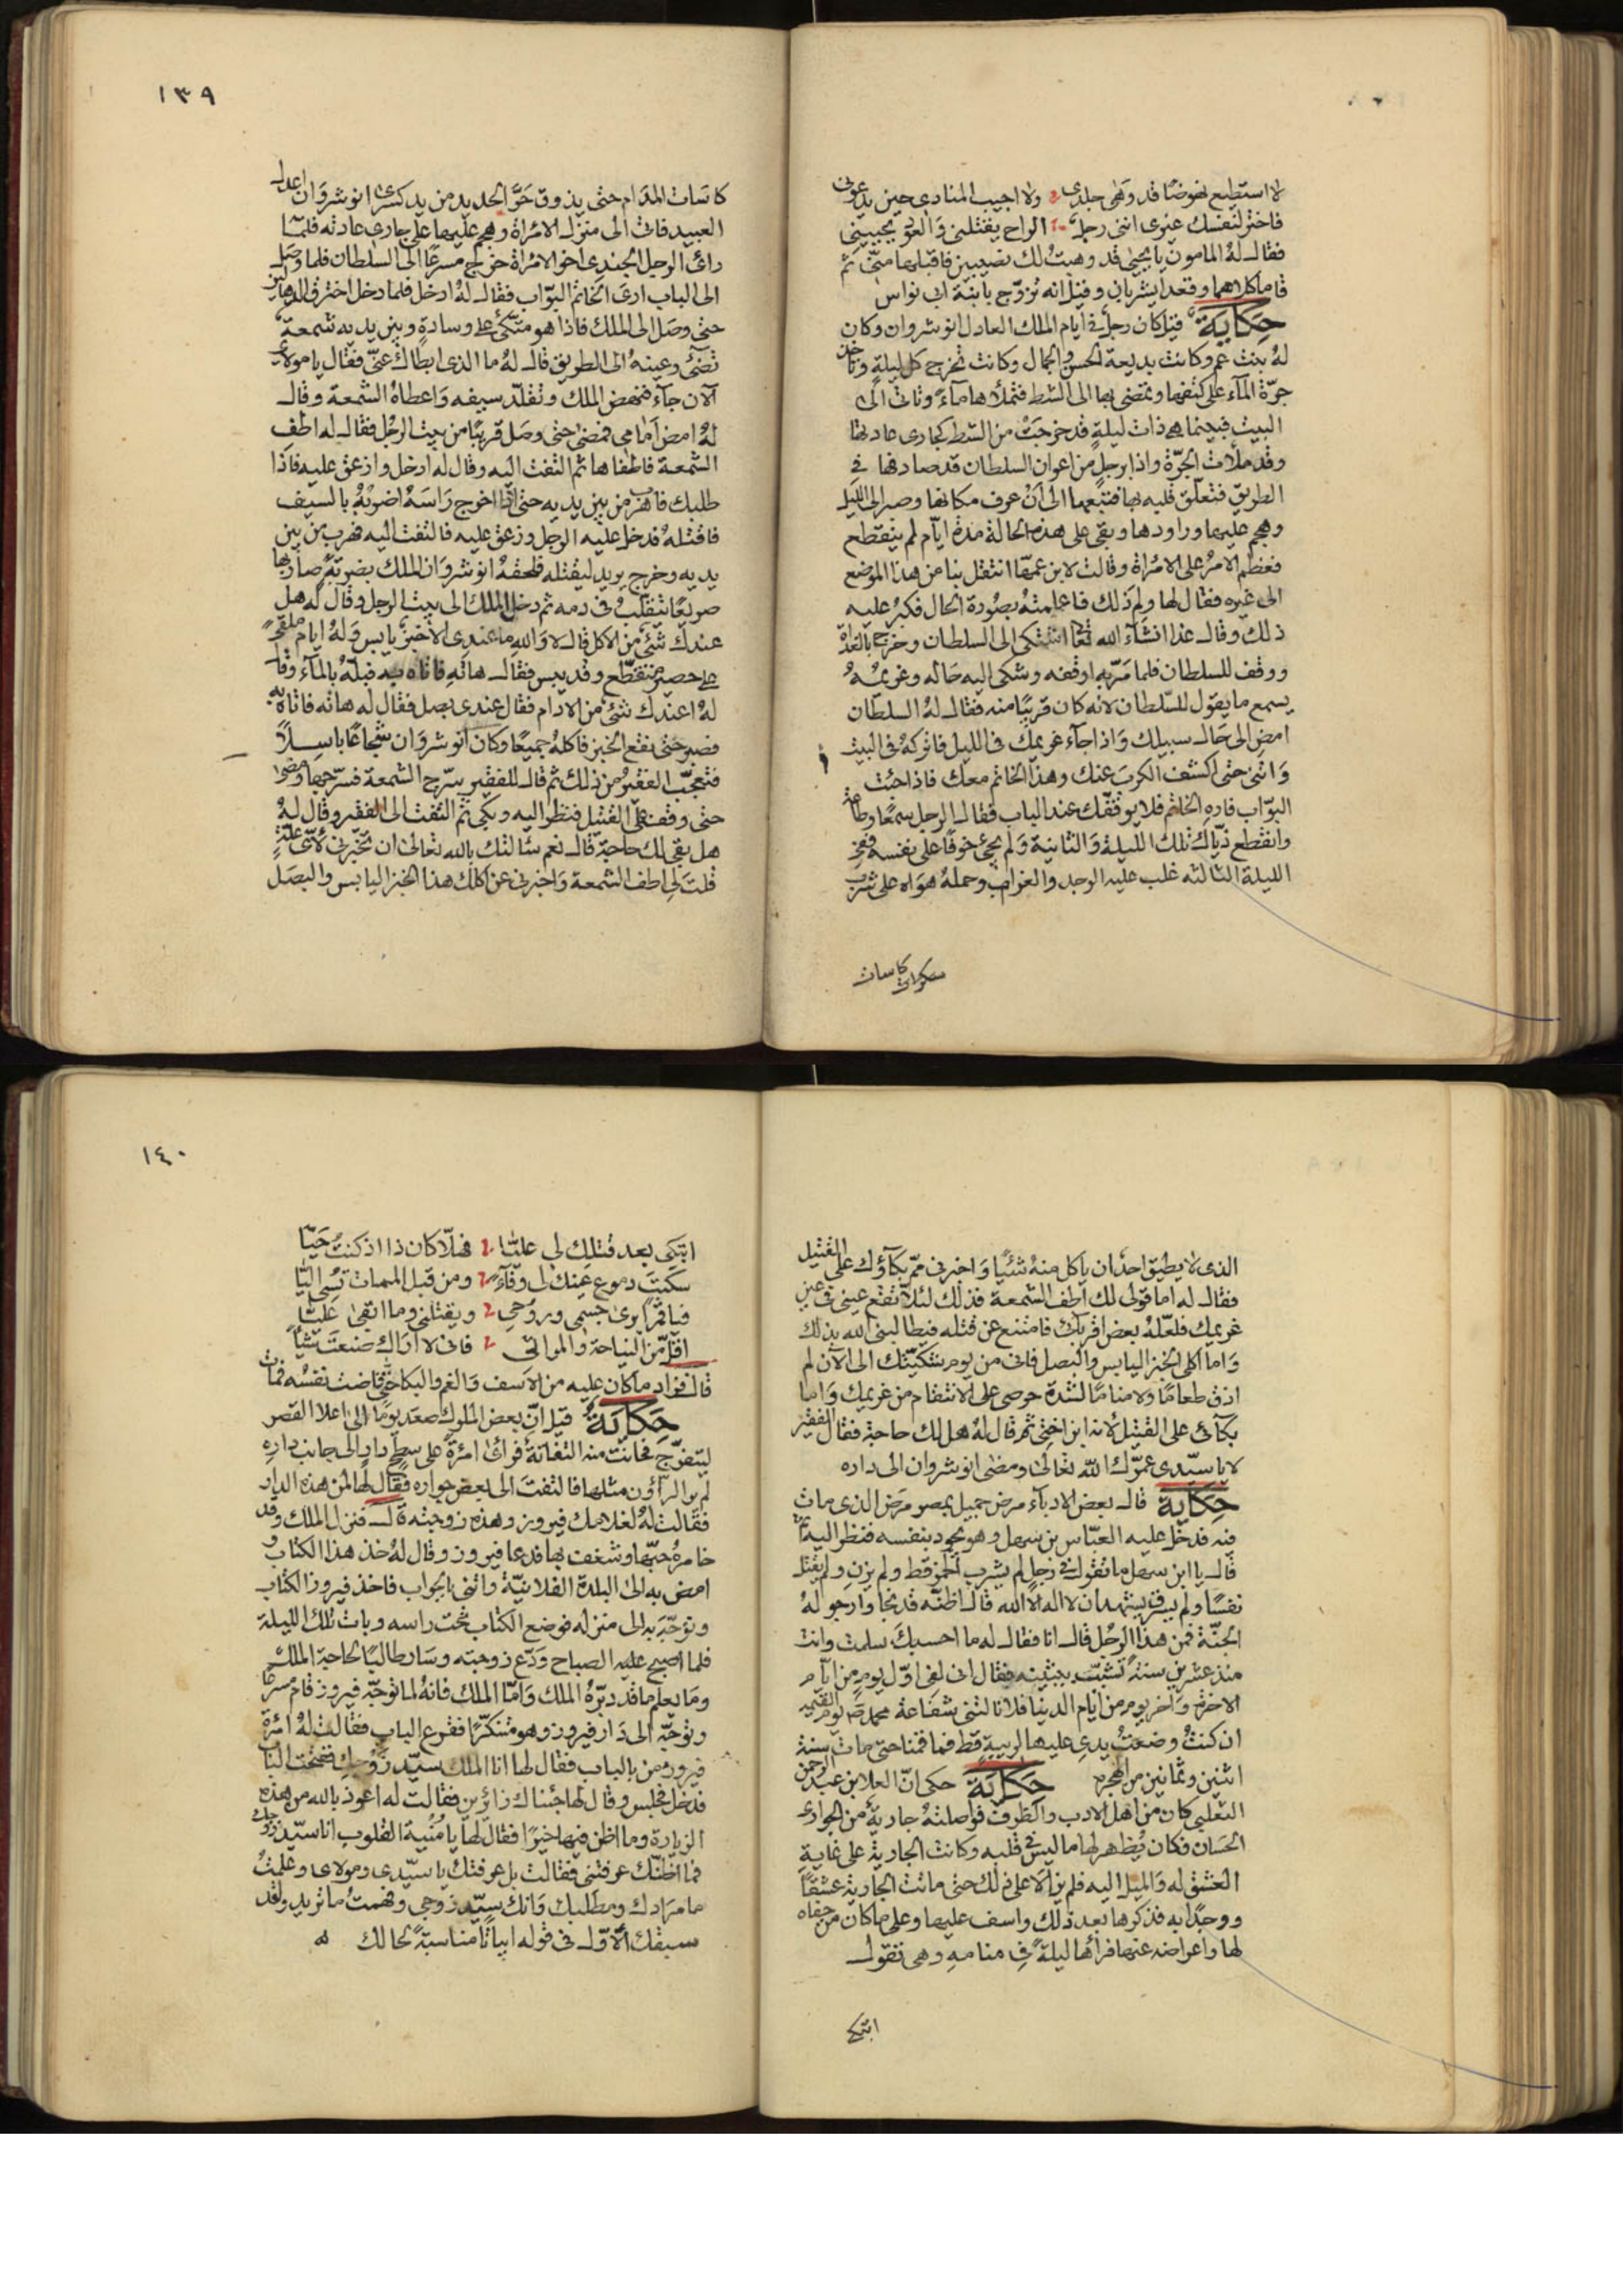 لا استطيع نهوضا قد وهى جلدي ولا اجيب المنادى حين يدعونى
فاختر لنفسك غيرى اننى رجل الراح يقتلنى والعود يحيينى
فقال له المامون يا يحيى قد وهبت لك نصيبين فاقبلهما منى ثم
قاما كلاهما وقعدا يشربان وقيل انه تزوج بابنة ابى نواس
حكاية قيل كان رجل فى ايام الملك العادل انوشروان وكان
له بنت عم وكانت بديعة الحسن والجمال وكانت تخرج كل ليلة وتاخذ
جرة المآء على كتفها وتمضى بها الى الشط فتملاها مآء وتاتى الى
البيت فبينما هى ذات ليلة قد خرجت من الشط كجارى عادتها
وقد ملأت الجرة واذا برجل من اعوان السلطان قد صادفها فى
الطريق فتعلق قلبه بها فتبعها الى ان عرف مكانها وصبر الى الليل
وهجم عليها وراودها وبقى على هذه الحالة مدة ايام لم ينقطع
فعظم الامر على الامراة وقالت لابن عمها انتقل بنا من هذا الموضع
الى غيره فقال لها ولم ذلك فاعلمته بصورة الحال فكبر عليه
ذلك وقال غدا انشآء الله تعا اشتكى الى السلطان وخرج بالغداة
ووقف للسلطان فلما مر به اوقفه وشكى اليه حاله وغريمه
يسمع ما يقول للسلطان لانه كان قريبا منه فقال له السلطان
امض الى حال سبيلك واذا جآء غريمك فى الليل فاتركه فى البيت
واتنى حتى اكشف الكرب عنك وهذا الخاتم معك فاذا جئت
البواب فاره الخاتم فلا يوقفك عند الباب فقال الرجل سمعا وطاعة
وانقطع ذياك تلك الليلة والثانية ولم يجئ خوفا على نفسه ففى
الليلة الثالثه غلب عليه الوجد والغرام وحمله هواه على شرب
كاسات
كاسات المدام حتى يذوق حر الحديد من يد كسرى انوشروان اعدل
العبيد فاتى الى منزل الامراة وهجم عليها على جارى عادته فلما
راى الرجل الجندى اخو الامراة خرج مسرعا الى السلطان فلما وصل
الى الباب ارى الخاتم البواب فقال له ادخل فلما دخل اخترق الدهاليز
حتى وصل الى الملك فاذا هو متكئ على وسادة وبين يديه شمعة
تضئ وعينه الى الطريق قال له ما الذى ابطاك عنى فقال يا مولاى
الآن جآء فنهض الملك وتقلد سيفه واعطاه الشمعة وقال
له امض امامى فمضى حتى وصل قريبا من بيت الرجل فقال له اطف
الشمعة فاطفاها ثم التفت اليه وقال له ادخل وازعق عليه فاذا
طلبك فاهرب من بين يديه حتى اذا اخرج راسه اضربه بالسيف
فاقتله فدخل عليه الرجل وزعق عليه فالتفت اليه فهرب من بين
يديه وخرج يريد ليقتله فلحقه انوشروان الملك بضربة صار بها
صريعا يتقلب فى دمه ثم دخل الملك الى بيت الرجل وقال له هل
عندك شئ من الاكل قال لا والله ما عندى الا خبز يابس وله ايام ملقح
على حصير متقطع وقد يبس فقال هاته فاتاه به فبله بالمآء وقال
له اعندك شئ من الادام فقال عندى بصل فقال له هاته فاتاه به
فصبر حتى نقع الخبز فاكله جميعا وكان انوشروان شجاعا باسلا
فتعجب الفقير من ذلك ثم قال للفقير سرج الشمعة فسرجها ومضى
حتى وقف على القتيل فنظر اليه وبكى ثم التفت الى الفقير وقال له
هل بقى لك حاجة قال نعم سالتك بالله تعالى ان تخبرنى لاى علة
قلت لى اطف الشمعة واخبرنى عن اكلك هذا الخبز اليابس والبصل
١٣٩
الذى لا يطيق احد ان ياكل منه شئيا واخبرنى مم بكآؤك على القتيل
فقال له اما قولى لك اطف الشمعة فذلك لئلا تقع عينى فى عين
غريمك فلعله بعض اقربك فامتنع عن قتله فيطالبنى الله بذلك
واما اكلى الخبز اليابس والبصل فانى من يوم شكيتك الى الآن لم
اذق طعاما ولا مناما لشدة حرصى على الانتقام من غريمك واما
بكآئى على القتيل لانه ابن اختى ثم قال له هل لك حاجة فقال الفقير
لا يا سيدى عمرك الله تعالى ومضى انوشروان الى داره
حكاية قال بعض الادبآء مرض جميل بمصر مرض الذى مات
فيه فدخل عليه العباس بن سهل وهو يجود بنفسه فنظر اليه ثم
قال يا ابن سهل ما تقول فى رجل لم يشرب الخمر قط ولم يزن ولم يقتل
نفسا ولم يسرق يشهد ان لا اله الا الله قال اظنه قد نجا وارجو له
الجنة فمن هذا الرجل قال انا فقال له ما احسبك سلمت وانت
منذ عشرين سنة تشبب ببثينه فقال انى لفى اول يوم من ايام
الاخرة واخر يوم من ايام الدنيا فلا نالتنى شفاعة محمد ص يوم القيمه
ان كنت وضعت يدى عليها لريبة قط فما قمنا حتى مات سنة
اثنين وثمانين من الهجره حكاية حكى ان العلا بن عبد الرحمن
التغلبى كان من اهل الادب والظرف فواصلته جارية من الجوارى
الحسان فكان يظهر لها ما ليس فى قلبه وكانت الجارية على غاية
العشق له والميل اليه فلم يزالا على ذلك حتى ماتت الجارية عشقا
ووجدا به فذكرها بعد ذلك واسف عليها وعلى ما كان من جفاه
لها واعراضه عنها فرأها ليلة فى منامه وهى تقول
اتبكى
اتبكى بعد قتلك لى عليا فهلا كان ذا اذ كنت حيا
سكبت دموع عينك لى وفآء ومن قبل الممات تسى اليا
فيا قمرا برى جسمى وروحى ويقتلنى وما ابقى عليا
اقل من النياحة والمراثى فانى لا اراك صنعت شيا
قال فزاد ما كان عليه من الاسف والغم والبكا حتى فاضت نفسه فمات
حكاية قيل ان بعض الملوك صعد يوما الى اعلا القصر
ليتفرج فحانت منه التفاتة فراى امرة على سطح دار الى جانب داره
لم ير الرآؤن مثلها فالتفت الى بعض جواره فقال لها لمن هذه الدار
فقالت له لغلامك فيروز وهذه زوجته قال فنزل الملك وقد
خامره حبها وشغف بها فدعا فيروز وقال له خذ هذا الكتاب و
امض به الى البلدة الفلانية واتنى بالجواب فاخذ فيروز الكتاب
وتوجه به الى منزله فوضع الكتاب تحت راسه وبات تلك الليلة
فلما اصبح عليه الصباح ودع زوجته وسار طالبا لحاجة الملك
وما يعلم ما قد دبره الملك واما الملك فانه لما توجه فيروز قام مسرعا
وتوجه الى دار فيروز وهو متنكرا فقرع الباب فقالت له امرة
فيروز من بالباب فقال لها انا الملك سيد زوجك ففتحت الباب
فدخل فجلس وقال لها جئناك زائرين فقالت له اعوذ بالله من هذه
الزيارة وما اظن فيها خيرا فقال لها يا منية القلوب انا سيد زوجك
فما اظنك عرفتنى فقالت بل عرفتك يا سيدى ومولاى وعلمت
ما مرادك ومطلبك وانك سيد زوجى وفهمت ما تريد ولقد
سبقك الاول فى قوله ابياتا مناسبة لحالك
١٤٠